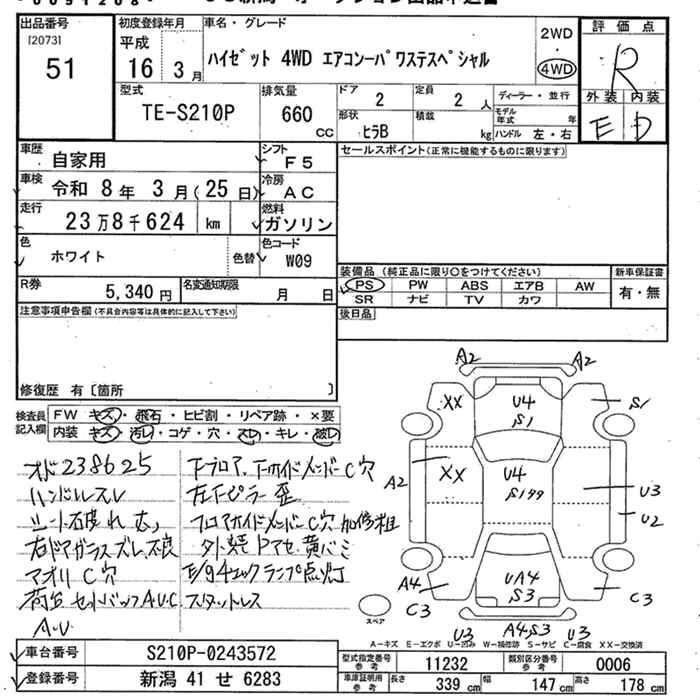 出品番号
[2073]
51
初度登録年月
平成
16 3月
車名・グレード
ハイゼット 4WD エアコンーパワステスペシャル
2WD
・
4WD
評価点
R
外装 内装
E D
型式
TE-S210P
排気量
660
CC
ドア
2
定員
2 人
ディーラー・並行
形状
ヒラB
積載
kg
モデル年式 年
ハンドル 左・右
車歴
自家用
シフト
F5
車検
令和 8年 3月(25日)
冷房
AC
走行
23万8千624 km
燃料
ガソリン
色
ホワイト
色替
色コード
W09
R券
5,340円
名変通知期限
月 日
セールスポイント(正常に機能するものに限ります)
装備品(純正品に限り○をつけてください)
PS PW ABS エアB AW
SR ナビ TV カワ
新車保証書
有・無
後日品
注意事項申告欄(不具合内容等は具体的に記入して下さい)
修復歴 有〔箇所 〕
検査員記入欄
FW キズ・飛石・ヒビ割・リペア跡・×要
内装 キズ・汚レ・コゲ・穴・スレ・キレ・破レ
オド238625
ハンドルスレ
シート破れ
右ドアガラスズレ不良
マオリ C穴
荷台セットバックAUC
A.U
下フロア、下サイドメンバーC穴
左下ピラー歪
フロアサイドメンバーC穴加修粗
外装Pアセ黄バミ
E/gチェックランプ点灯
スタットレス
A2 A2
XX U4 S1 S1
A2 XX U4 S199 U3
U2
A4 UA4 S3 C3
C3
U3 A4,S3 U3
スペア
A－キズ E－エクボ U－凹み W－補修跡 S－サビ C－腐食 XX－交換済
車台番号
S210P-0243572
登録番号
新潟 41 せ 6283
型式指定番号
参考
11232
類別区分番号
参考
0006
車庫証明用
参考
長さ 339 cm 幅 147 cm 高さ 178 cm